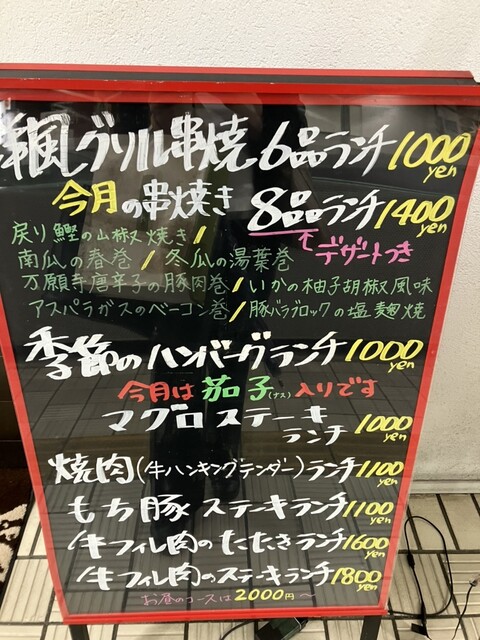 洋風グリル串焼 6品ランチ 1000yen
今月の串焼き 8品ランチ 1400yen
デザートつき
戻り鰹の山椒焼き/
南瓜の春巻/冬瓜の湯葉巻
万願寺唐辛子の豚肉巻/いかの柚子胡椒風味
アスパラガスのベーコン巻/豚バラブロックの塩麹焼
季節のハンバーグランチ 1000yen
今月は茄子(ナス)入りです
マグロステーキランチ 1000yen
焼肉(牛ハンギングテンダー)ランチ 1100yen
もち豚ステーキランチ 1100yen
牛フィレ肉のたたきランチ 1600yen
牛フィレ肉のステーキランチ 1800yen
お昼のコースは2000円〜